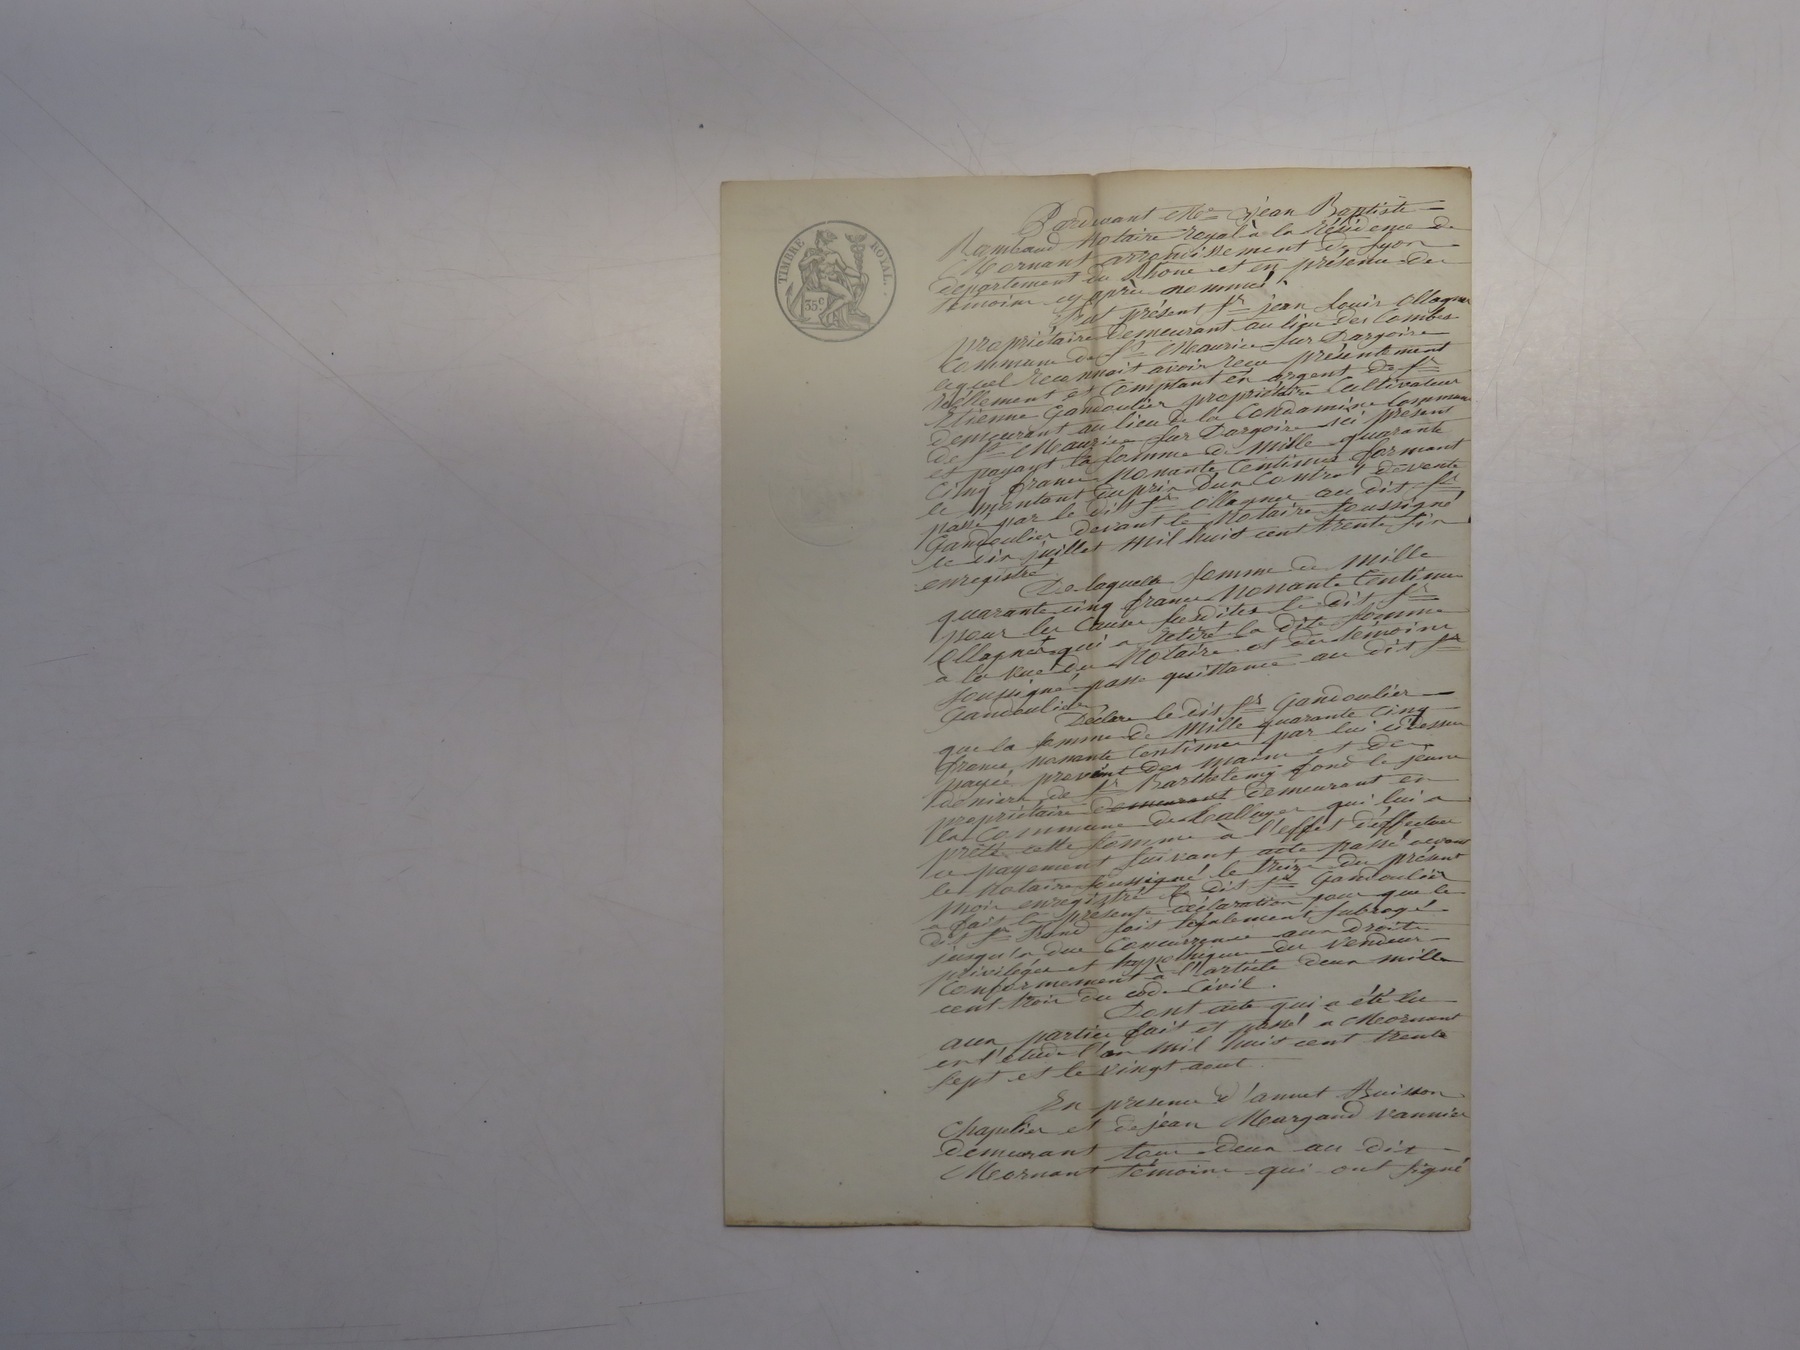 TIMBRE ROYAL.
35 c
Pardevant Me Jean Baptiste
Rambaud Notaire royal à la résidence de
Mornant arrondissement de Lyon
département du Rhône et en présence des
témoins cy après nommés
Est présent sr jean Louis Ollagnier
propriétaire demeurant au lieu des Combes
Commune de St Maurice sur Dargoire
lequel reconnait avoir reçu présentement
réellement et comptant en argent de sr
Etienne Gandoulier propriétaire Cultivateur
demeurant au lieu de la Condamine Commune
de St Maurice sur Dargoire ici présent
et payant la somme de Mille quarante
Cinq francs Nonante Centimes formant
le montant du prix d'un Contrat de vente
passé par le dit sr Ollagnier au dit sr
Gandoulier devant le Notaire soussigné
le dix juillet mil huit cent trente six
enregistré
De laquelle somme de Mille
quarante cinq francs Nonante Centimes
pour les Causes susdites le dit sr
Ollagnier qui a retiré la dite somme
à la vue du Notaire et des témoins
soussignés, passe quittance au dit sr
Gandoulier
Déclare le dit sr Gandoulier
que la somme de Mille quarante Cinq
francs nonante Centimes par lui cidessus
payée provient des mains et des
deniers de sr Barthelemy fond le jeune
propriétaire demeurant demeurant en
la Commune de qui lui a
prêté cette somme à l'effet d'effectuer
ce payement suivant acte passé devant
le Notaire soussigné le treize du présent
mois enregistré le dit sr Gandoulier
a fait la présente déclaration pour que le
dit sr fond soit légalement subrogé
jusqu'à due Concurrence aux droits
priviléges et hypothèques du vendeur
Conformément à l'article deux mille
cent trois du code Civil.
Dont acte qui a été lu
aux parties fait et passé à Mornant
en l'étude l'an mil huit cent trente
sept et le vingt aout
En presence d'annet Buisson
Chapelier et de jean Murgaud vannier
demeurant tous deux au dit
Mornant témoins qui ont signé